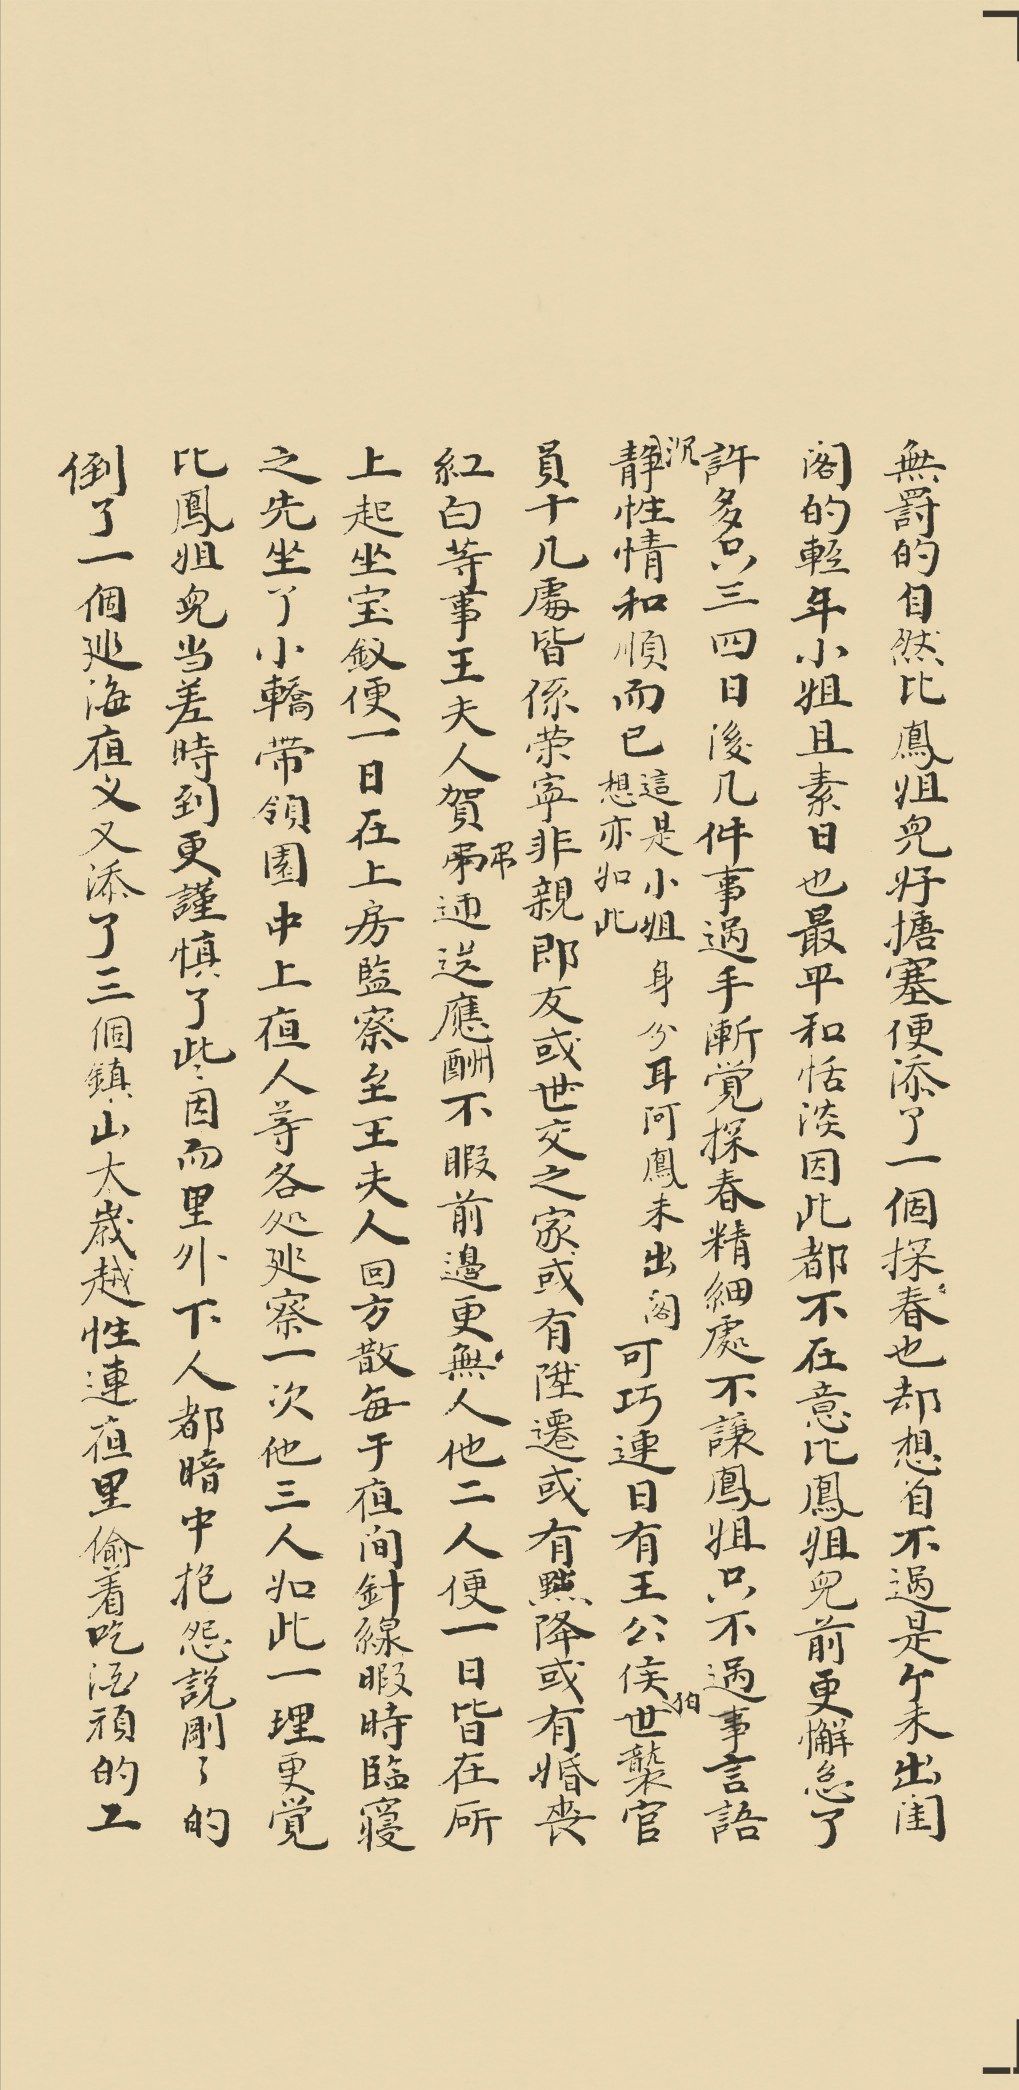 無罸的自然比鳳姐兒好搪塞便添了一個探春也却想自不過是个未出闺
阁的輕年小姐且素日也最平和恬淡因此都不在意比鳳姐兒前更懈怠了
許多只三四日後几件事過手漸覺探春精細處不讓鳳姐只不過事言語
沉
静性情和順而已
這是小姐身分耳阿鳳未出阁
想亦如此
可巧連日有王公侯世襲官
伯
員十几處皆係荣寧非親即友或世交之家或有陞遷或有黜降或有婚丧
紅白等事王夫人賀弔迎送應酬不暇前邊更無人他二人便一日皆在所
吊
上起坐宝釵便一日在上房監察至王夫人回方散每于夜间針線暇時臨寝
之先坐了小轎带領園中上夜人等各处廵察一次他三人如此一理更覺
比鳳姐兒当差時到更謹慎了些因而里外下人都暗中抱怨説剛了的
倒了一個廵海夜义又添了三個鎮山太歲越性連夜里偷着吃酒頑的工